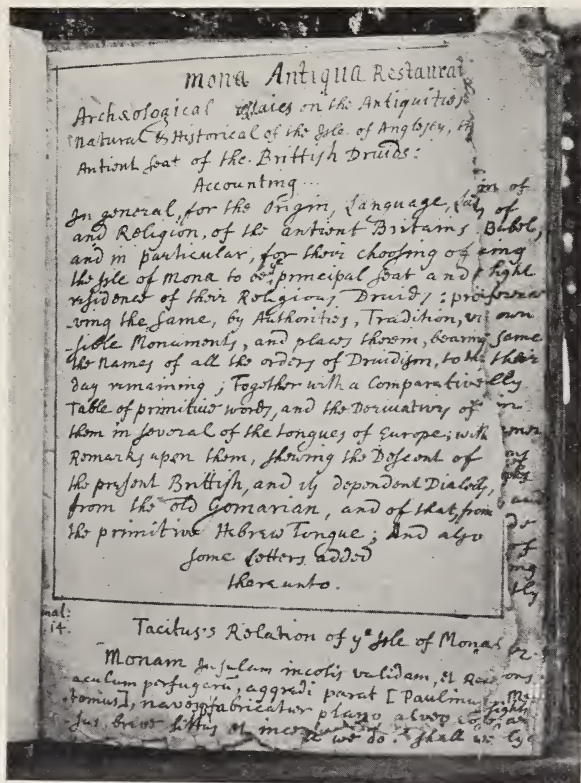 Mona Antiqua Restaurat
Archæological Essaies on the Antiquities
Natural & Historical of the Isle of Anglesey, th
Antient Seat of the Brittish Druids:
Accounting...
In general, for the Origin, Language,
and Religion, of the antient Britains
and in particular, for their choosing of
the Isle of Mona to be ye principal Seat and
residence of their Religious Druids: pro
-ving the Same, by Authorities, Tradition, vi
-sible Monuments, and places therein, bearing
the Names of all the orders of Druidism, to
day remaining; Together with a Comparative
Table of primitive words, and the Derivatives of
them in several of the tongues of Europe; with
Remarks upon them, shewing the Descent of
the present Brittish, and its dependent Dialects,
from the old Gomarian, and of that, from
the primitive Hebrew Tongue; And also
some Letters added
thereunto.
in of
of
Babel,
ming
light
own
same
their
lly
in
as
and
de
of
ng
tly
nal:
14.
Tacitus's Relation of ye Isle of Mona
Monam Insulam incolis validam, et Rece
aculum perfugarū, aggredi parat [Paulinus
-tonius], navesq fabricatur plano alveo
-sus breve littus et ince
we do. shall